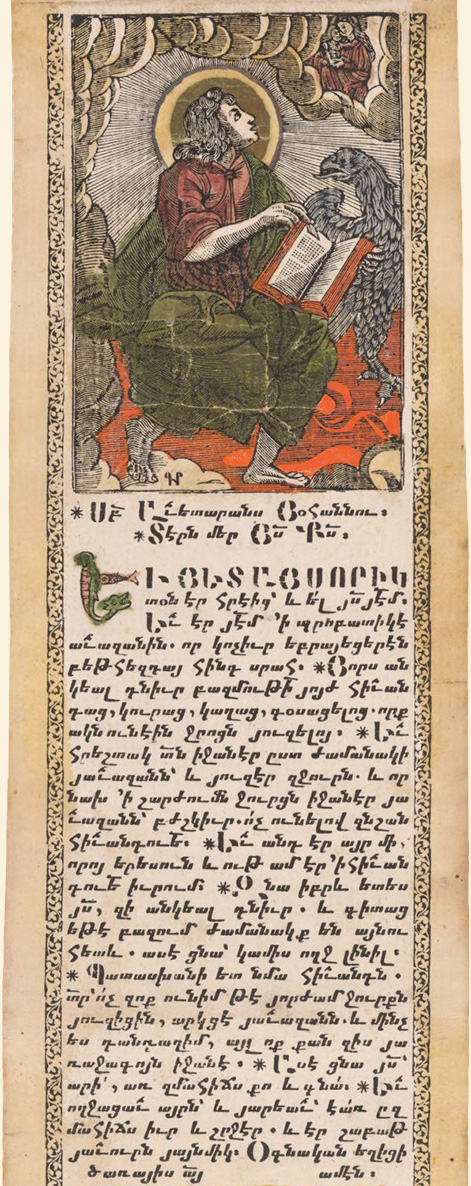 ✶ Սբ Աւետարանս Յօհաննու։
✶ Տէրն մեր Յս Քս.
Ի ՅԵՏ ԱՅՍՈՐԻԿ
տօն էր հրէից՝ և ել յս յէմ.
Եւ էր յէմ ՚ի պրոբատիկէ
աւազանին. որ կոչիւր եբրայեցերէն
բեթհեզդայ հինգ սրահ։ ✶ Յորս ան
կեալ դնիւր բազմութի՛ յոյժ հիւան
դաց, կուրաց, կաղաց, գօսացելոց. որք
ակն ունէին ջրոցն յուզելոյ։ ✶ Եւ
հրեշտակ տն իջանէր ըստ ժամանակի
յաւազանն՝ և յուզէր զջուրն. և որ
նախ ՚ի շարժումն ջուրցն իջանէր յա
ւազանն՝ բժշկիւր. ոչ ունելով զնշան
հիւանդութե։ ✶ Եւ անդ էր այր մի,
որոյ երեսուն և ութ ամ էր ՚ի հիւան
դութե իւրում։ ✶ Զնա իբրև ետես
յս, զի անկեալ դնիւր. և գիտաց
եթէ բազում ժամանակք են այնու
հետև. ասէ ցնա՝ կամիս ողջ լինիլ։
✶ Պատասխանի ետ նմա հիւանդն.
տր՝ ոչ զոք ունիմ թէ յորժամ ջուրքն
յուզիցին, արկցէ յաւազանն. և մինչ
ես դանդաղիմ, այլ ոք քան զիս յա
ռաջագոյն իջանէ. ✶ Ասէ ցնա յս՝
արի՛, առ զմահիճս քո և գնա։ ✶ Եւ
ողջացաւ այրն՝ և յարեաւ՝ էառ զ
մահիճս իւր և շրջէր. և էր շաբաթ
յաւուրն յայնմիկ։ Օգնական եղիցի
ծառայիս այ ամէն։